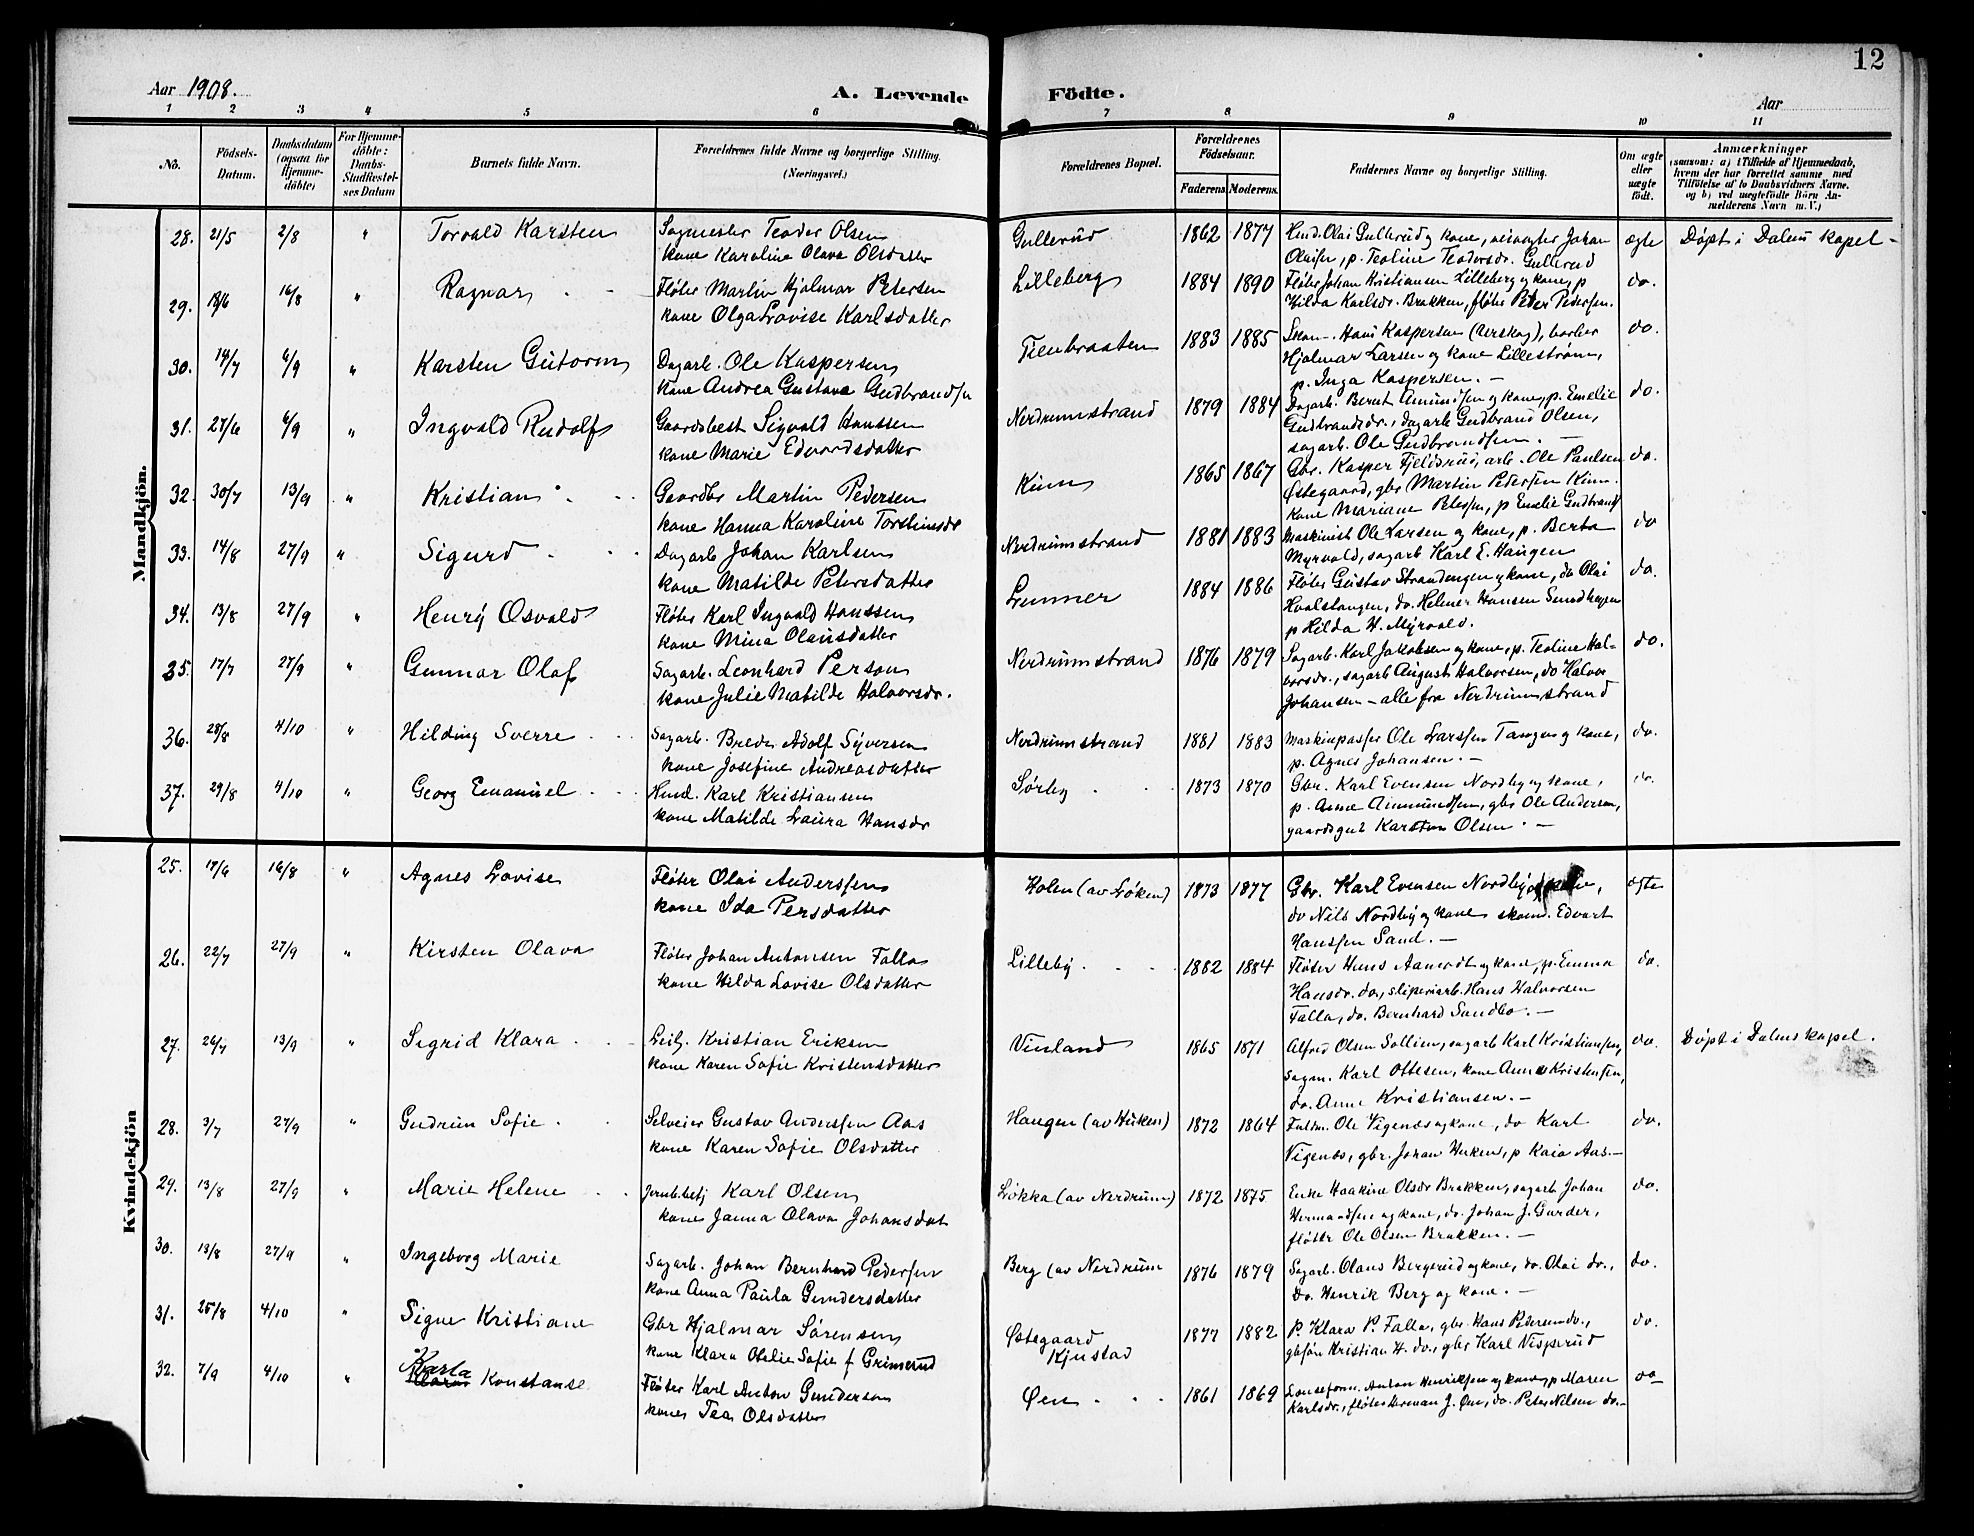 12
Aar 1908.
A. Levende Födte.
Aar
1 2 3 4 5 6 7 8 9 10 11
No.
Födsels-Datum.
Daabsdatum (ogsaa for Hjemmedöbte)
For Hjemmedöbte: Daabs-Stadfæstelses Datum
Barnets fulde Navn.
Forældrenes fulde Navne og borgerlige Stilling. (Næringsvei.)
Forældrenes Bopæl.
Forældrenes Födselsaar.
Faderens. Moderens.
Faddernes Navne og borgerlige Stilling.
Om ægte eller uægte födt.
Anmærkninger (saasom: a) i Tilfælde af Hjemmedaab, hvem der har forrettet samme med Tilföielse af to Daabsvidners Navne. og b) ved uægtefödte Börn Anmelderens Navn m. V.)
Mandkjön.
28. 21/5 2/8 " Torvald Karsten Sagmester Teodor Olsen Gullerud 1862 1877 Hmd. Olai Gullerud og kone, Johan ægte Døpt i Dalens kapel -
kone Karoline Olava Olsdatter Olaisen, p. Teoline Teodorsdr. Gullerud
29. 16/8 " Ragnar Fløter Martin Hjalmar Petersen Lilleberg 1884 1890 Fløter Johan Kristiansen Lilleberg og kone, p do.
kone Olga Lovise Karlsdatter Hilda Karlsdr. Brakken, fløter Peter Pedersen.
30. 14/7 6/9 " Karsten Gutorm Dagarb. Ole Kaspersen Tienbraaten 1883 1885 Hans Kaspersen (Aurskog), barber do.
kone Andrea Gustava Gudbrandsn Hjalmar Larsen og kone Lillestrøm,
p. Inga Kaspersen. -
31. 27/6 6/9 " Ingvald Rudolf Gaardsbest Sigvald Hanssen Nerdrumstrand 1879 1884 Dagarb. Bernt Amundsen og kone, p. Emelie do.
kone Marie Edvardsdatter Gudbrandsdr., dagarb Gudbrand Olsen,
sagarb. Ole Gudbrandsen. -
32. 30/7 13/9 " Kristian Gaardbr Martin Pedersen Kinn 1865 1867 Gbr. Kasper Fjeldsrud, arb. Ole Paulsen do.
kone Hanna Karoline Torstensdr Østegaard, gbr Martin Pedersen Kinn.
kone Mariane Petersen, p Emelie Gudbrands
33. 14/8 27/9 " Sigurd Dagarb Johan Karlsen Nerdrumstrand 1881 1883 Maskinist Ole Larsen og kone, p. Berta do
kone Matilde Petersdatter Myrvold, sagarb Karl E. Haugen
34. 13/8 27/9 " Henry Osvald Fløter Karl Ingvald Hanssen Lunner 1884 1886 Fløter Gustav Strandengen og kone, do Olai do.
kone Mina Olausdatter Hvalstangen, do. Helmer Hansen Sundhagen
p Hilda H. Myrvold.
35. 17/7 27/9 " Gunnar Olaf Sagarb. Leonhard Person Nerdrumstrand 1876 1879 Sagarb. Karl Jakobsen og kone, p. Teoline Hal- do.
kone Julie Matilde Halvorsdr. vorsdr., sagarb August Halvorsen, do Halvor
Johansen - alle fra Nerdrumstrand
36. 28/8 4/10 " Hilding Sverre Sagarb. Brede Adolf Syversen Nerdrumstrand 1881 1883 Maskinpasser Ole Larssen Tangen og kone, do.
kone Josefine Andreasdatter p. Agnes Johansen. -
37. 29/8 4/10 " Georg Emanuel Hmd. Karl Kristiansen Sørby 1873 1870 Gbr. Karl Evensen Nordby og kone, do.
kone Matilde Laura Hansdr p. Anne Ammundsen, gbr Ole Andersen,
gaardsgut Karsten Olsen. -
Kvindekjön
25. 17/6 16/8 " Agnes Lovise Fløter Olai Anderssen Holen (av Løken) 1873 1877 Gbr. Karl Evensen Nordby ægte
kone Ida Persdatter do Nils Nordby og kone, skom. Edvart
Hanssen Sand. -
26. 22/7 27/9 " Kirsten Olava Fløter Johan Antonsen Falla Lilleby 1882 1884 Fløter Hans og kone, p. Emma do.
kone Hilda Lovise Olsdatter Hansdr. do, sliperiarb. Hans Halvorsen
Falla, do. Bernhard Sundbo. -
27. 26/7 13/9 " Sigrid Klara Leilj. Kristian Eriksen Vinland 1865 1871 Alfred Olsen Sollien, sagarb Karl Kristiansen, do. Døpt i Dalens kapel.
kone Karen Sofie Kristensdatter Sagm. Karl Ottesen, kone Anne Kristensen,
do. Anne Kristiansen. -
28. 3/7 27/9 " Gudrun Sofie Selveier Gustav Anderssen Aas Haugen (av Huken) 1872 1864 Ole Vigenæs og kone, do Karl do.
kone Karen Sofie Olsdatter Vigenæs, gbr. Johan Huken, p Kaia Aas. -
29. 13/8 27/9 " Marie Helene Jernb.betj Karl Olsen Løkka (av Nerdrum) 1872 1875 Enke Haakine Olsdr Brakken, sagarb Johan do.
kone Janna Olava Johansdat Hermandsen og kone, do. Johan J. Garder,
fløter Ole Olsen Brakken. -
30. 13/8 27/9 " Ingeborg Marie Sagarb. Johan Bernhard Pedersen Berg (av Nerdrum 1876 1879 Sagarb. Olaus Bergerud og kone, do. Olai do., do.
kone Anna Paula Gundersdatter Do. Henrik Berg og kone. -
31. 25/8 4/10 " Signe Kristiane Gbr Hjalmar Sørensen Østegaard 1877 1882 P. Klara P. Falla, gbr. Hans Petersen do., do.
kone Klara Otelie Sofie f Grimsrud Kjustad gbsøn Kristian H. do., gbr Karl Visperud
32. 7/9 4/10 " Karla Konstanse Fløter Karl Anton Gunderson Øen 1861 1869 Anton Henriksen og kone, p Maren do
kone Tea Olsdatter Karlsdr., fløter Herman J. Øen, do. Peter Nilsen do. -